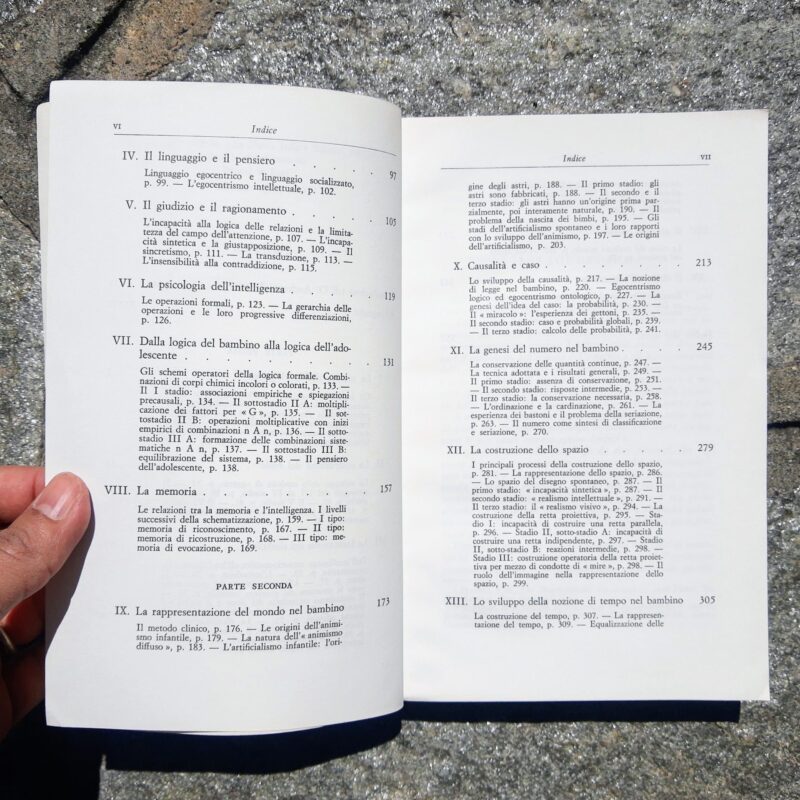 VI Indice
IV. Il linguaggio e il pensiero . . . . . 97
Linguaggio egocentrico e linguaggio socializzato,
p. 99. — L'egocentrismo intellettuale, p. 102.
V. Il giudizio e il ragionamento . . . . . 105
L'incapacità alla logica delle relazioni e la limita-
tezza del campo dell'attenzione, p. 107. — L'incapa-
cità sintetica e la giustapposizione, p. 109. — Il
sincretismo, p. 111. — La transduzione, p. 113. —
L'insensibilità alla contraddizione, p. 115.
VI. La psicologia dell'intelligenza . . . . . 119
Le operazioni formali, p. 123. — La gerarchia delle
operazioni e le loro progressive differenziazioni,
p. 126.
VII. Dalla logica del bambino alla logica dell'ado-
lescente . . . . . . . . . 131
Gli schemi operatori della logica formale. Combi-
nazioni di corpi chimici incolori o colorati, p. 133. —
Il I stadio: associazioni empiriche e spiegazioni
precausali, p. 134. — Il sottostadio II A: moltipli-
cazione dei fattori per « G », p. 135. — Il sot-
tostadio II B: operazioni moltiplicative con inizi
empirici di combinazioni n A n, p. 136. — Il sotto-
stadio III A: formazione delle combinazioni siste-
matiche n A n, p. 137. — Il sottostadio III B:
equilibrazione del sistema, p. 138. — Il pensiero
dell'adolescente, p. 138.
VIII. La memoria . . . . . . . . . 157
Le relazioni tra la memoria e l'intelligenza. I livelli
successivi della schematizzazione, p. 159. — I tipo:
memoria di riconoscimento, p. 167. — II tipo:
memoria di ricostruzione, p. 168. — III tipo: me-
moria di evocazione, p. 169.
PARTE SECONDA
IX. La rappresentazione del mondo nel bambino 173
Il metodo clinico, p. 176. — Le origini dell'animi-
smo infantile, p. 179. — La natura dell'« animismo
diffuso », p. 183. — L'artificialismo infantile: l'ori-
Indice VII
gine degli astri, p. 188. — Il primo stadio: gli
astri sono fabbricati, p. 188. — Il secondo e il
terzo stadio: gli astri hanno un'origine prima par-
zialmente, poi interamente naturale, p. 190. — Il
problema della nascita dei bimbi, p. 195. — Gli
stadi dell'artificialismo spontaneo e i loro rapporti
con lo sviluppo dell'animismo, p. 197. — Le origini
dell'artificialismo, p. 203.
X. Causalità e caso . . . . . . . . 213
Lo sviluppo della causalità, p. 217. — La nozione
di legge nel bambino, p. 220. — Egocentrismo
logico ed egocentrismo ontologico, p. 227. — La
genesi dell'idea del caso: la probabilità, p. 230. —
Il « miracolo »: l'esperienza dei gettoni, p. 235. —
Il secondo stadio: caso e probabilità globali, p. 239.
— Il terzo stadio: calcolo delle probabilità, p. 241.
XI. La genesi del numero nel bambino . . . . 245
La conservazione delle quantità continue, p. 247. —
La tecnica adottata e i risultati generali, p. 249. —
Il primo stadio: assenza di conservazione, p. 251.
— Il secondo stadio: risposte intermedie, p. 253. —
Il terzo stadio: la conservazione necessaria, p. 258.
— L'ordinazione e la cardinazione, p. 261. — La
esperienza dei bastoni e il problema della seriazione,
p. 263. — Il numero come sintesi di classificazione
e seriazione, p. 270.
XII. La costruzione dello spazio . . . . . 279
I principali processi della costruzione dello spazio,
p. 281. — La rappresentazione dello spazio, p. 286.
— Lo spazio del disegno spontaneo, p. 287. — Il
primo stadio: « incapacità sintetica », p. 287. — Il
secondo stadio: « realismo intellettuale », p. 291. —
Il terzo stadio: il « realismo visivo », p. 294. — La
costruzione della retta proiettiva, p. 295. — Sta-
dio I: incapacità di costruire una retta parallela,
p. 296. — Stadio II, sotto-stadio A: incapacità di
costruire una retta indipendente, p. 297. — Stadio
II, sotto-stadio B: reazioni intermedie, p. 298. —
Stadio III: costruzione operatoria della retta proiet-
tiva per mezzo di condotte di « mire », p. 298. — Il
ruolo dell'immagine nella rappresentazione dello
spazio, p. 299.
XIII. Lo sviluppo della nozione di tempo nel bambino 305
La costruzione del tempo, p. 307. — La rappresen-
tazione del tempo, p. 309. — Equalizzazione delle